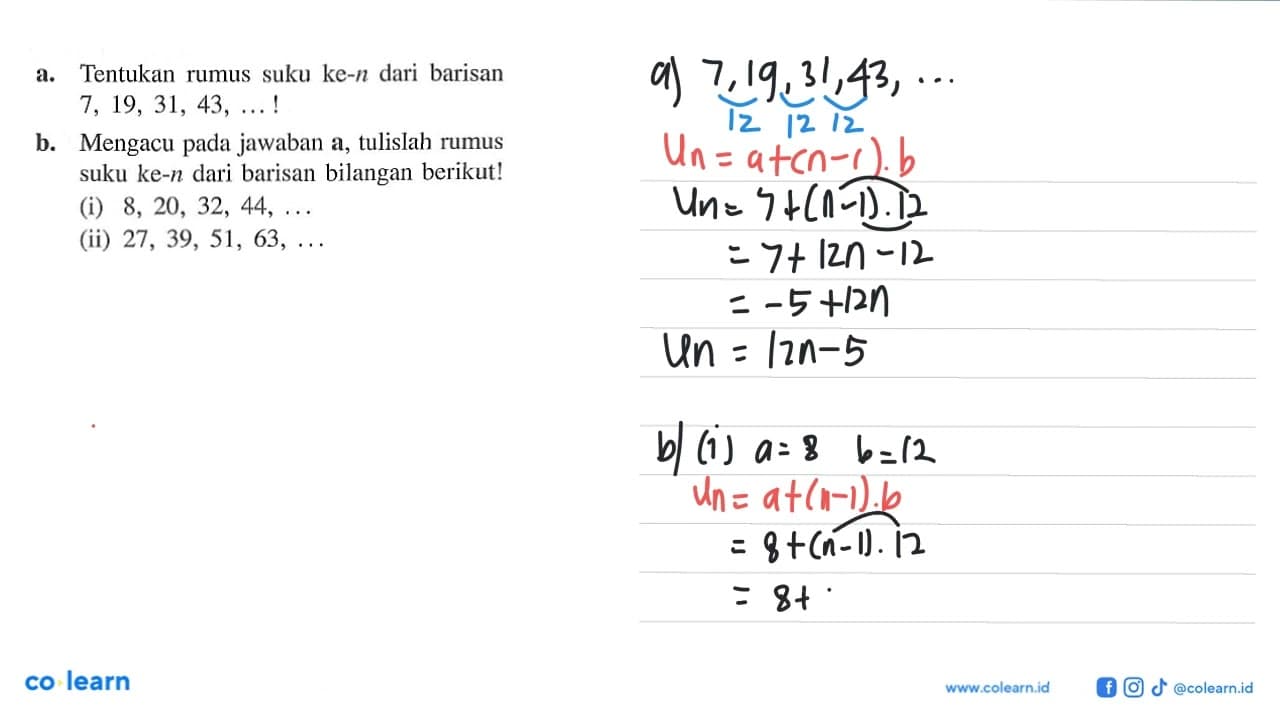 a. Tentukan rumus suku ke-n dari barisan
7, 19, 31, 43, ... !
b. Mengacu pada jawaban a, tulislah rumus
suku ke-n dari barisan bilangan berikut!
(i) 8, 20, 32, 44, ...
(ii) 27, 39, 51, 63, ...
a) 7, 19, 31, 43, ...
12 12 12
Un = a+(n-1).b
Un = 7+(n-1).12
= 7+12n-12
= -5+12n
Un = 12n-5
b) (i) a=8 b=12
Un = a+(n-1).b
= 8+(n-1).12
= 8+
co learn
www.colearn.id
@colearn.id